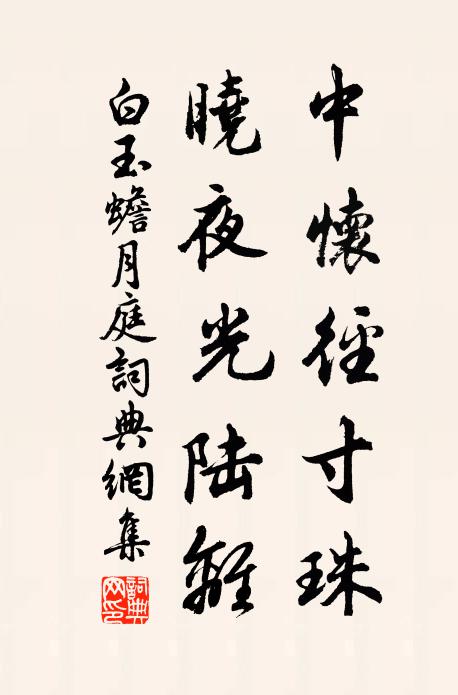 中懷徑寸珠
曉夜光陆離
白玉蟾月庭詞典網集
詞典网印